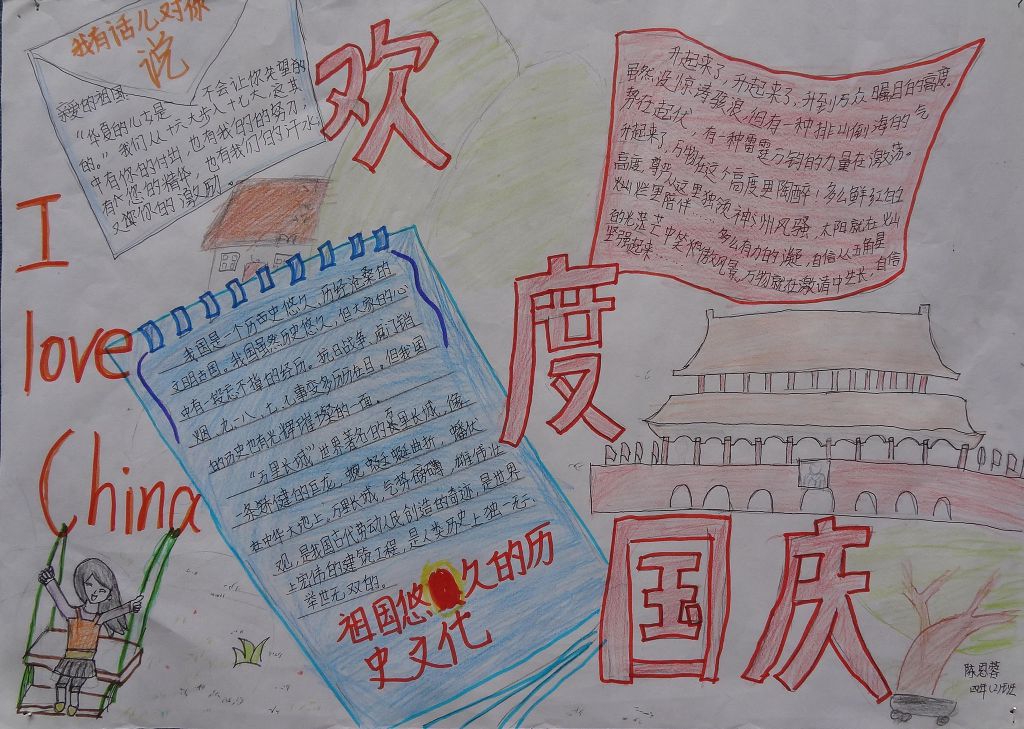 我有话儿对你
说
亲爱的祖国
"华夏的儿女是不会让你失望的
的。"我们从十六大步入十七大,这其
中有你的付出,也有我们的努力,
有您的精体,也有我们的汗水,
又蕴你的激励。
欢
度
国庆
I
love
China
升起来了,升起来了,升到万众瞩目的高度.
虽然没惊涛骇浪,但有一种排山倒海的气
势在起伏,有一种雷霆万钧的力量在激荡。
升起来了,万物在这个高度里陶醉!多么鲜红的
高度,尊严从这里独领神州风骚,太阳就在灿
灿烂里陪伴……多么有力的凝,自信从五角星
的光芒中笑傲风景,万物就在激请中生长,自信
坚强起来……
我国是一个历西史悠久、历经沧桑的
文明古国。我国虽然历史悠久,但大家的心
中有一段忘不掉的经历。抗日战争、虎门销
烟、九·八、七七事变多历历在目。但我国
的历史也有光辉璀璨的一面。
"万里长城"世界著名的万里长城,像
一条矫健的巨龙,蜿蜒曲折,腾伏
在中华大地上。万里长城,气势磅礴,雄伟壮
观,是我国古代劳动人民创造的奇迹,是世界
上宏伟的建筑工程,是人类历史上独一无二
举世无双的。
祖国悠久的历
史文化
陈恩蓉
四年(2)班